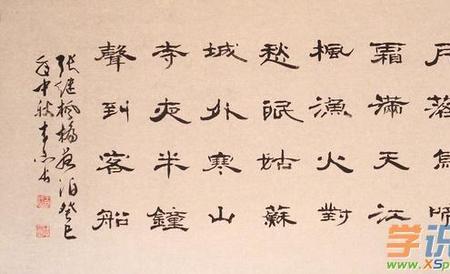 月落烏啼
霜滿天江
楓漁火對
愁眠姑蘇
城外寒山
寺夜半鐘
聲到客船
張繼楓橋夜泊癸巳
中秋
学说
www.XSp